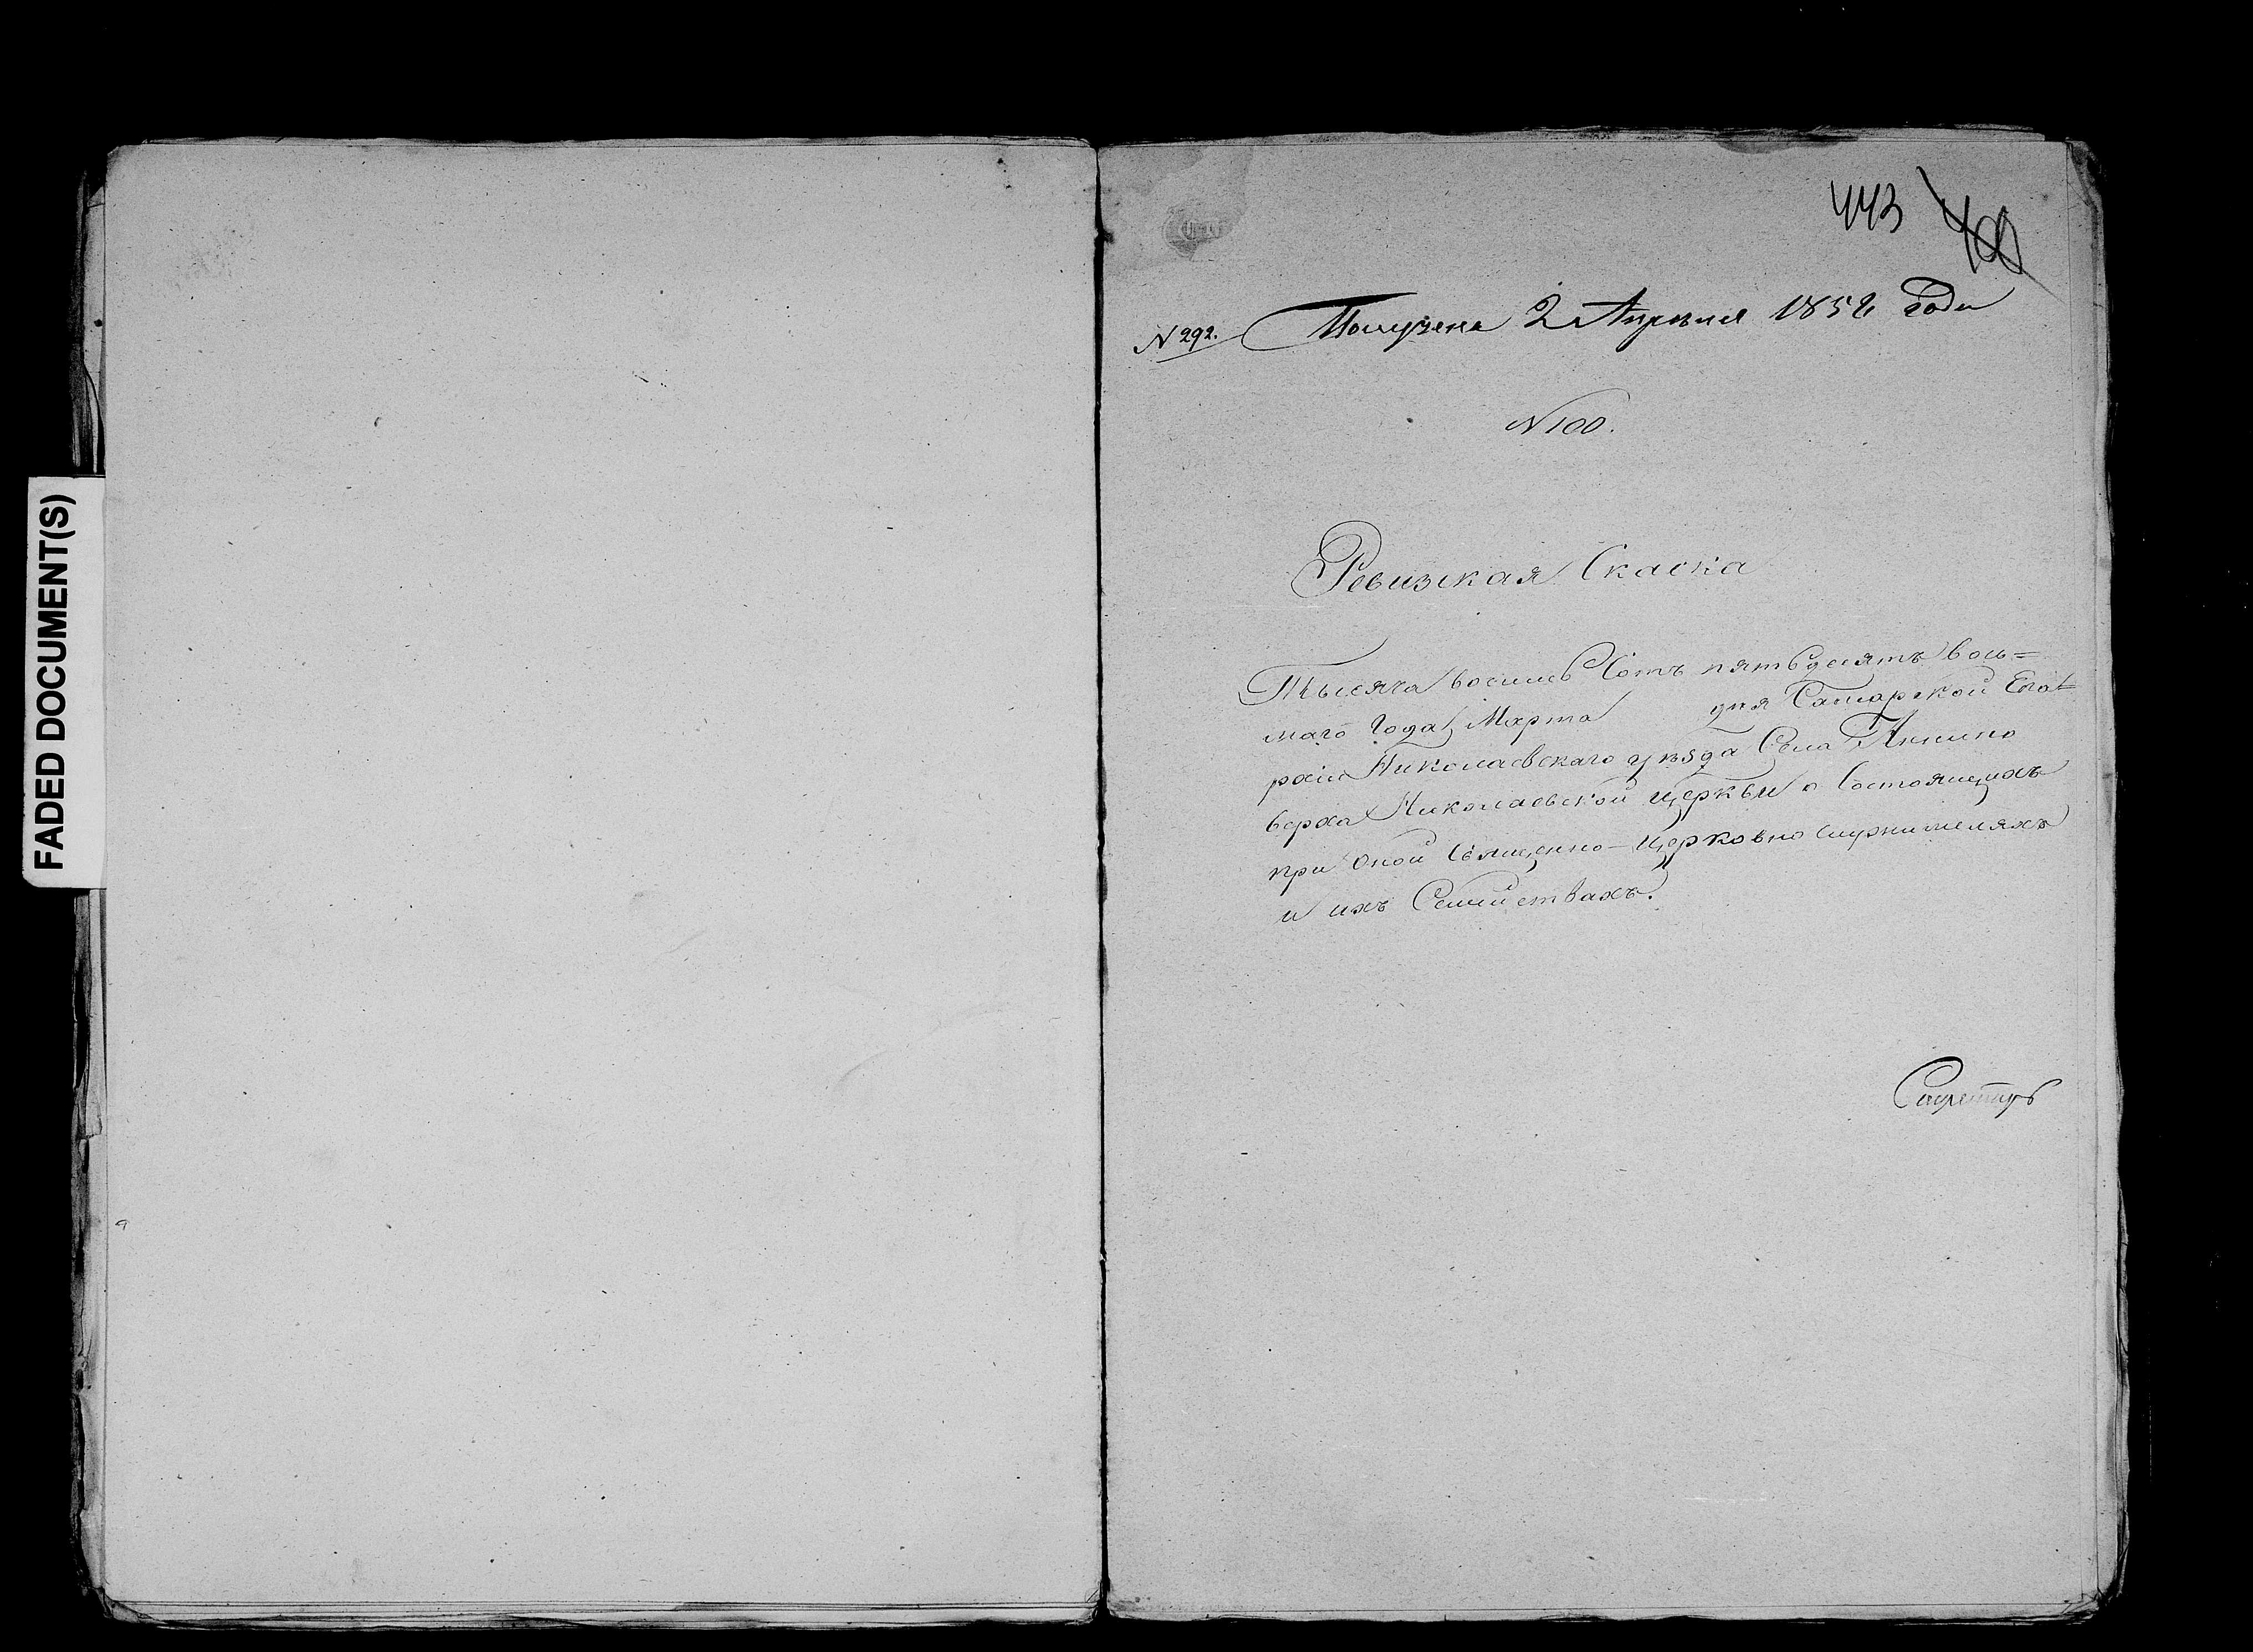 FADED DOCUMENT(S)
443 400
N 292. Получена 2 Апреля 1858 года
N 100.
Ревизская Скаска
Тысяча восемь Сотъ пятьдесятъ вось=
маго года Марта дня Самарской Епа=
рхіи Николаевскаго уѣзда Села Аннино
верха Николаевской церкви о Состоящихъ
при Оной Священно-Церковно служителяхъ
и ихъ Семействахъ.